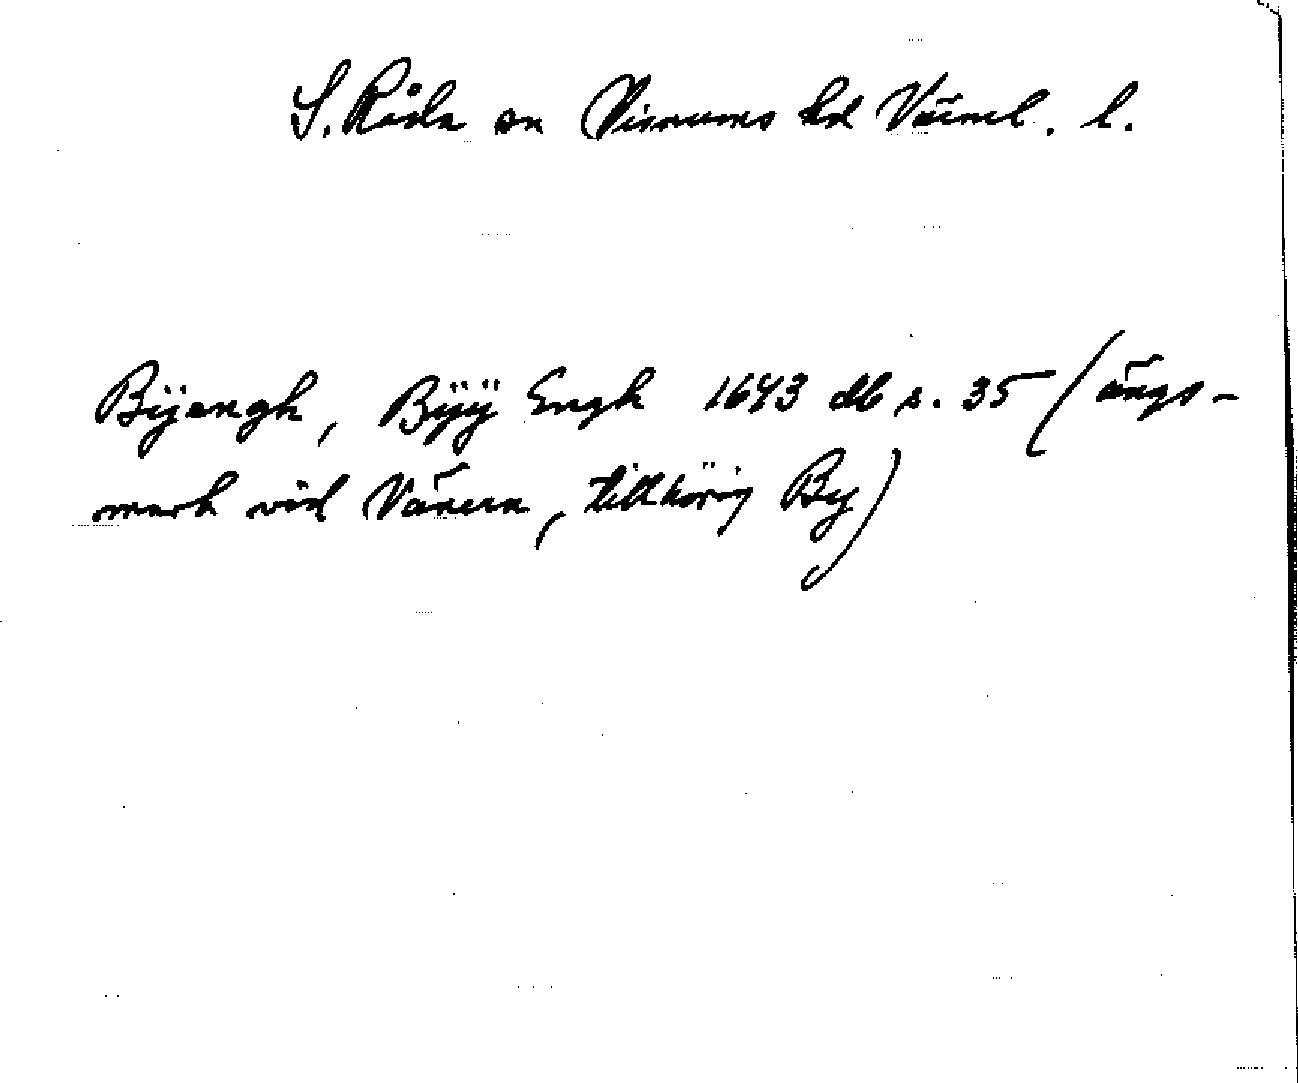 S. Råda sn Visnums hd Värml. l.
Bÿangh, Bÿÿ Engh 1643 db s. 35 (ängs-
mark vid Vänern, tillhörig By)